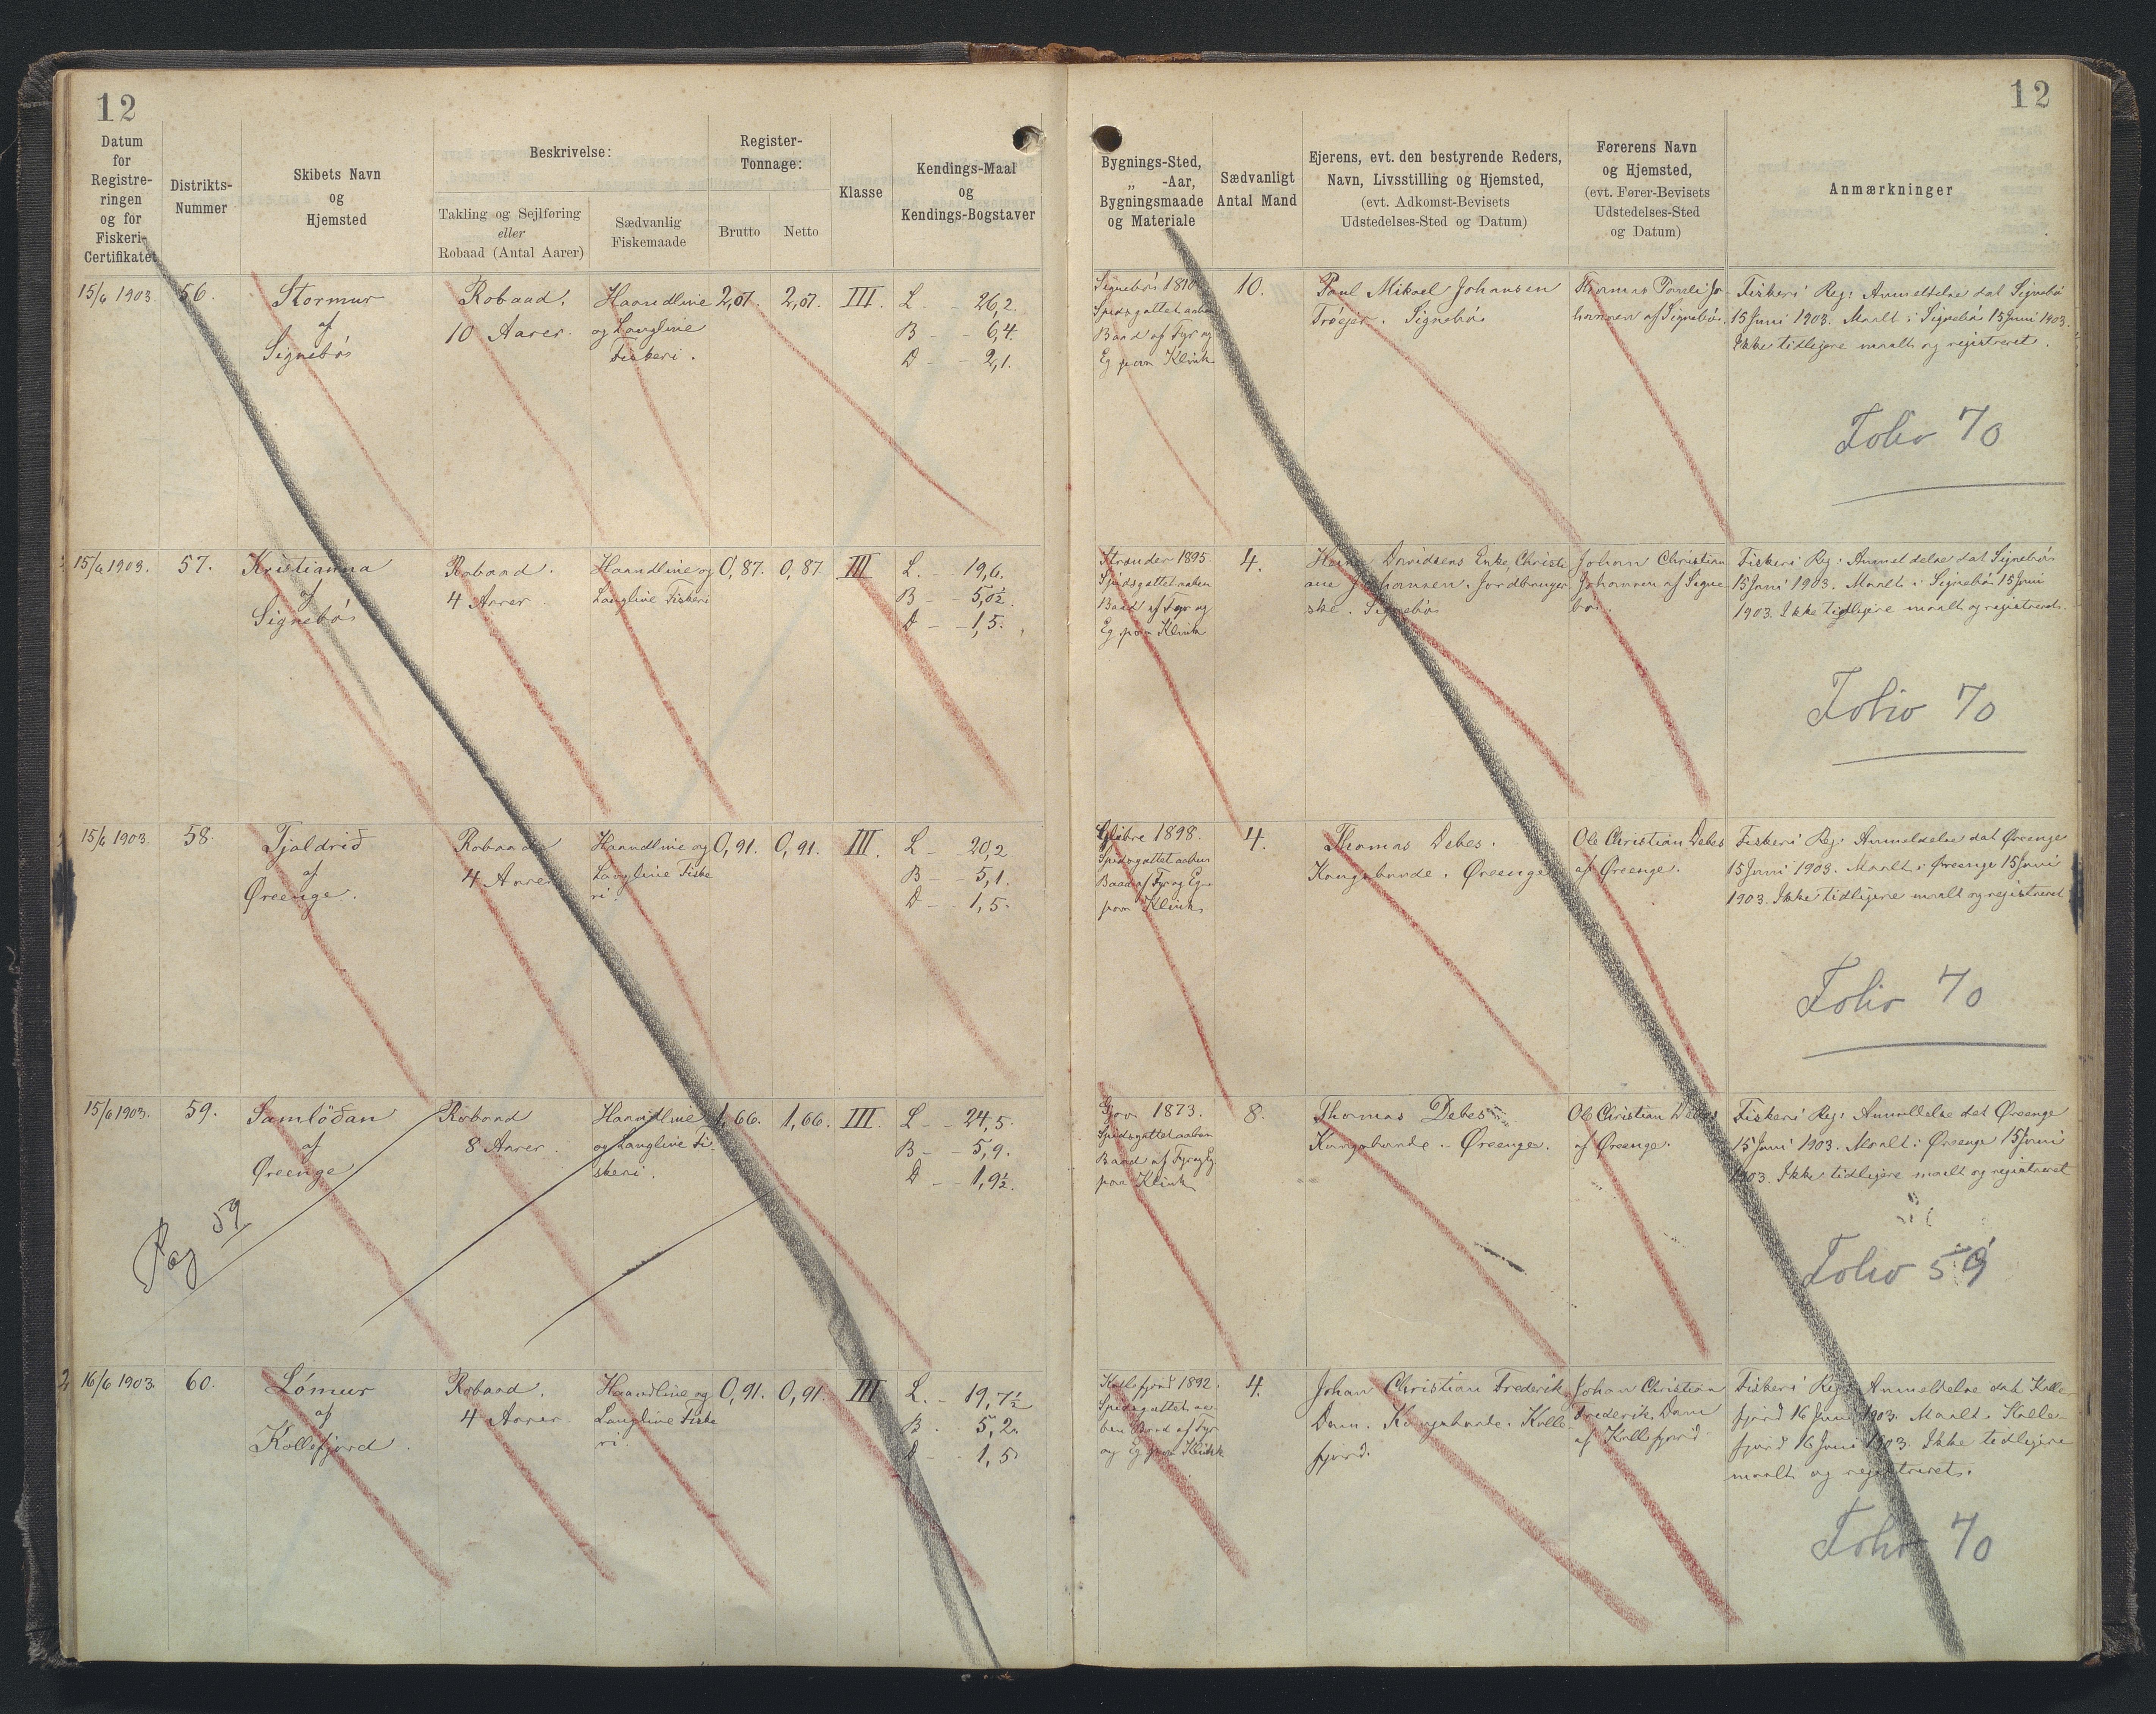 12
Datum
for
Registre-
ringen
og for
Fiskeri-
Certifikatet
Distrikts-
Nummer
Skibets Navn
og
Hjemsted
Beskrivelse:
Takling og Sejlføring
eller
Robaad (Antal Aarer)
Sædvanlig
Fiskemaade
Register-
Tonnage:
Brutto
Netto
Klasse
Kendings-Maal
og
Kendings-Bogstaver
15/6 1903.
56.
Stormur
af
Signebós
Robaad.
10 Aarer.
Haandline
og Langline
Fiskeri.
2,07.
2,07.
III.
L - 26,2.
B - 6,4.
D - 2,1.
15/6 1903.
57.
Kristianna
af
Signebós
Robaad.
4 Aarer.
Haandline og
Langline Fiskeri
0,87.
0,87
III
L. 19,6.
B - 5,0½.
D - 1,5.
15/6 1903
58.
Tjaldrið
af
Øreenge.
Robaad
4 Aarer
Haandline og
Langline Fiske
ri.
0,91.
0,91.
III.
L - 20,2
B - 5,1.
D - 1,5.
15/6 1903.
59.
Samlöðan
af
Øreenge
Robaad
8 Aarer.
Haandline
og Langline Fi-
skeri.
1,66.
1,66.
III.
L - 24,5.
B - 5,9.
D - 1,9½.
Pag 59
16/6 1903.
60.
Lómur
af
Kollefjord.
Robaad.
4 Aarer
Haandline og
Langline Fiske
ri.
0,91.
0,91.
III
L. - 19,7½
B. 5,2.
D - 1,5
12
Bygnings-Sted,
„ -Aar,
Bygningsmaade
og Materiale
Sædvanligt
Antal Mand
Ejerens, evt. den bestyrende Reders,
Navn, Livsstilling og Hjemsted,
(evt. Adkomst-Bevisets
Udstedelses-Sted og Datum)
Førerens Navn
og Hjemsted,
(evt. Fører-Bevisets
Udstedelses-Sted
og Datum)
Anmærkninger
Signebós
Spidsgattet aaben
Baad af Fyr og
Eg paa Klink
10.
Poul Mikael Johansen
Trøejer. Signebós
Thomas Jo-
hannesen af Signebós.
Fiskeri Reg: Anmeldelse dat Signebó
15 Juni 1903. Maalt i Signebós 15 Juni 1903.
Ikke tidligere maalt og registreret.
Folio 70
Strender 1895.
Spidsgattet aaben
Baad af Fyr og
Eg paa Klink
4.
Davidsens Enke, Christi
ane Johannesen. Jordbruger
ske. Signebós
Johan Christian
Johannesen af Signe
bós.
Fiskeri Reg: Anmeldelse dat Signebós
15 Juni 1903. Maalt i Signebós 15 Juni
1903. Ikke tidligere maalt og registreret.
Folio 70
Glibre 1898.
Spidsgattet aaben
Baad af Fyr og Eg
paa Klink
4.
Thomas Debes.
Kongsbonde. Øreenge
Ole Christian Debes
af Øreenge.
Fiskeri Reg: Anmeldelse dat Øreenge
15 Juni 1903. Maalt i Øreenge 15 Juni
1903. Ikke tidligere maalt og registreret
Folio 70
Gjov 1873.
Spidsgattet aaben
Baad af Fyr og Eg
paa Klink
8.
Thomas Debes
Kongsbonde. Øreenge.
Ole Christian Debes
af Øreenge.
Fiskeri Reg: Anmeldelse dat Øreenge
15 Juni 1903. Maalt i Øreenge 15 Juni
1903. Ikke tidligere maalt og registreret
Folio 59
Kollefjord 1892.
Spidsgattet aa-
ben Baad af Fyr
og Eg paa Klink
4.
Johan Christian Frederik
Dam. Kongsbonde. Kolle
fjord.
Johan Christian
Frederik Dam
af Kollefjord
Fiskeri Reg: Anmeldelse dat Kolle-
fjord 16 Juni 1903. Maalt i Kolle-
fjord 16 Juni 1903. Ikke tidligere
maalt og registreret.
Folio 70